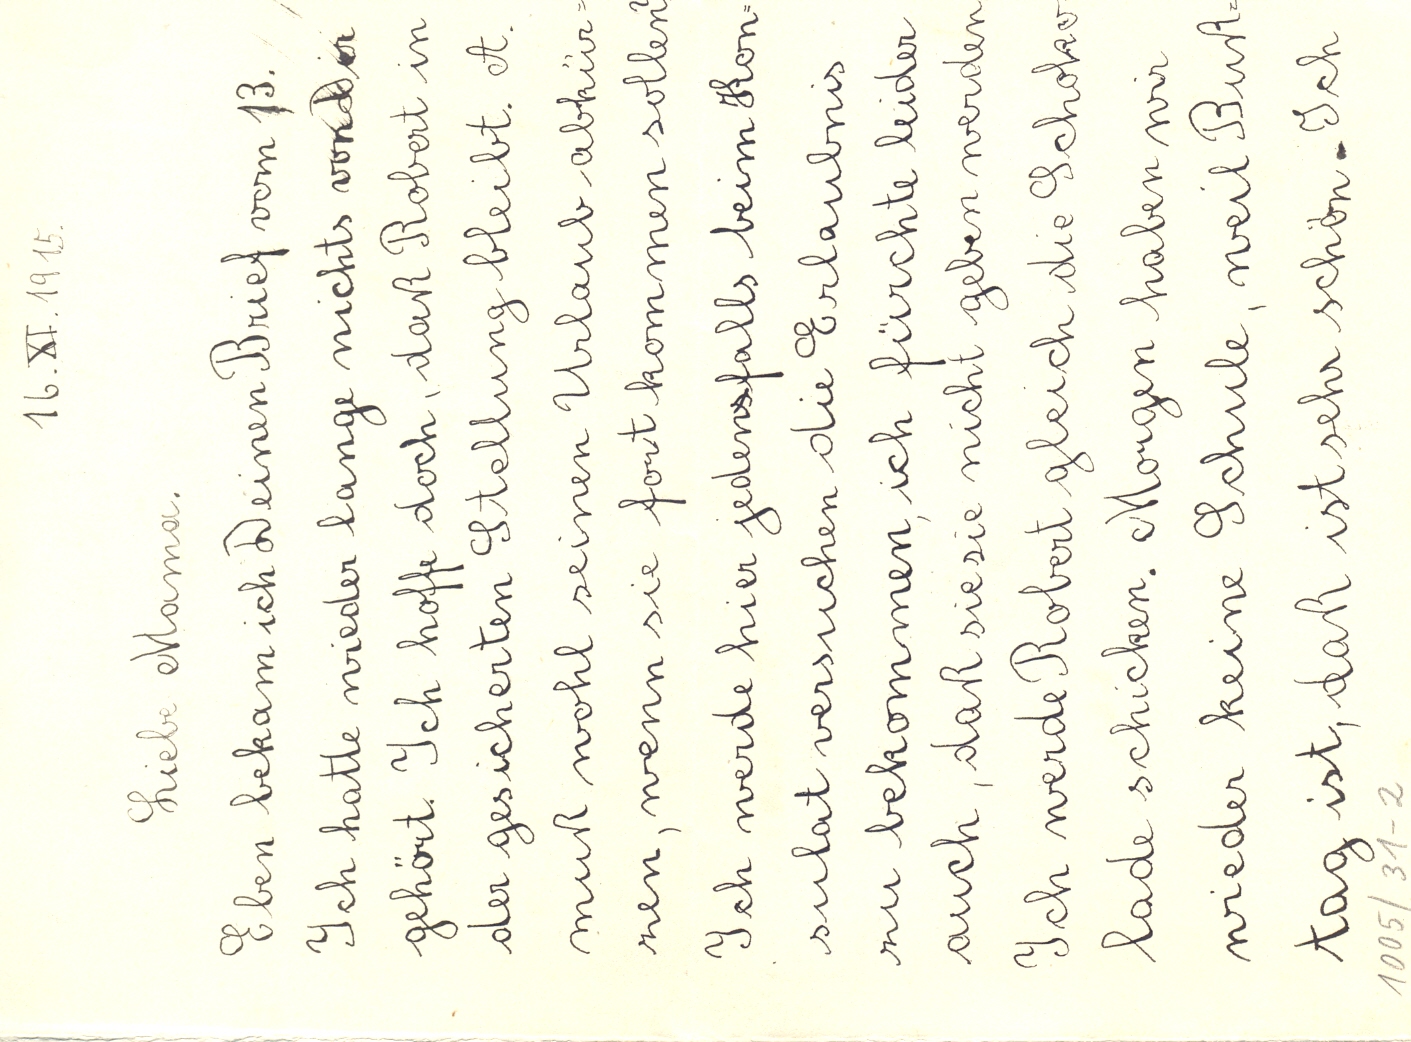 16. XI. 1915.
Liebe Mama.
Eben bekam ich Deinen Brief vom 13.
Ich hatte wieder lange nichts von Dir
gehört. Ich hoffe doch, daß Robert in
der gesicherten Stellung bleibt. A.
muß wohl seinen Urlaub abkür=
zen, wenn sie fort kommen sollen?
Ich werde hier jedensfalls beim Kon=
sulat versuchen die Erlaubnis
zu bekommen, ich fürchte leider
auch, daß sie sie nicht geben werden
Ich werde Robert gleich die Schoko-
lade schicken. Morgen haben wir
wieder keine Schule, weil Buß=
tag ist, daß ist sehr schön. Ich
1005/31-2